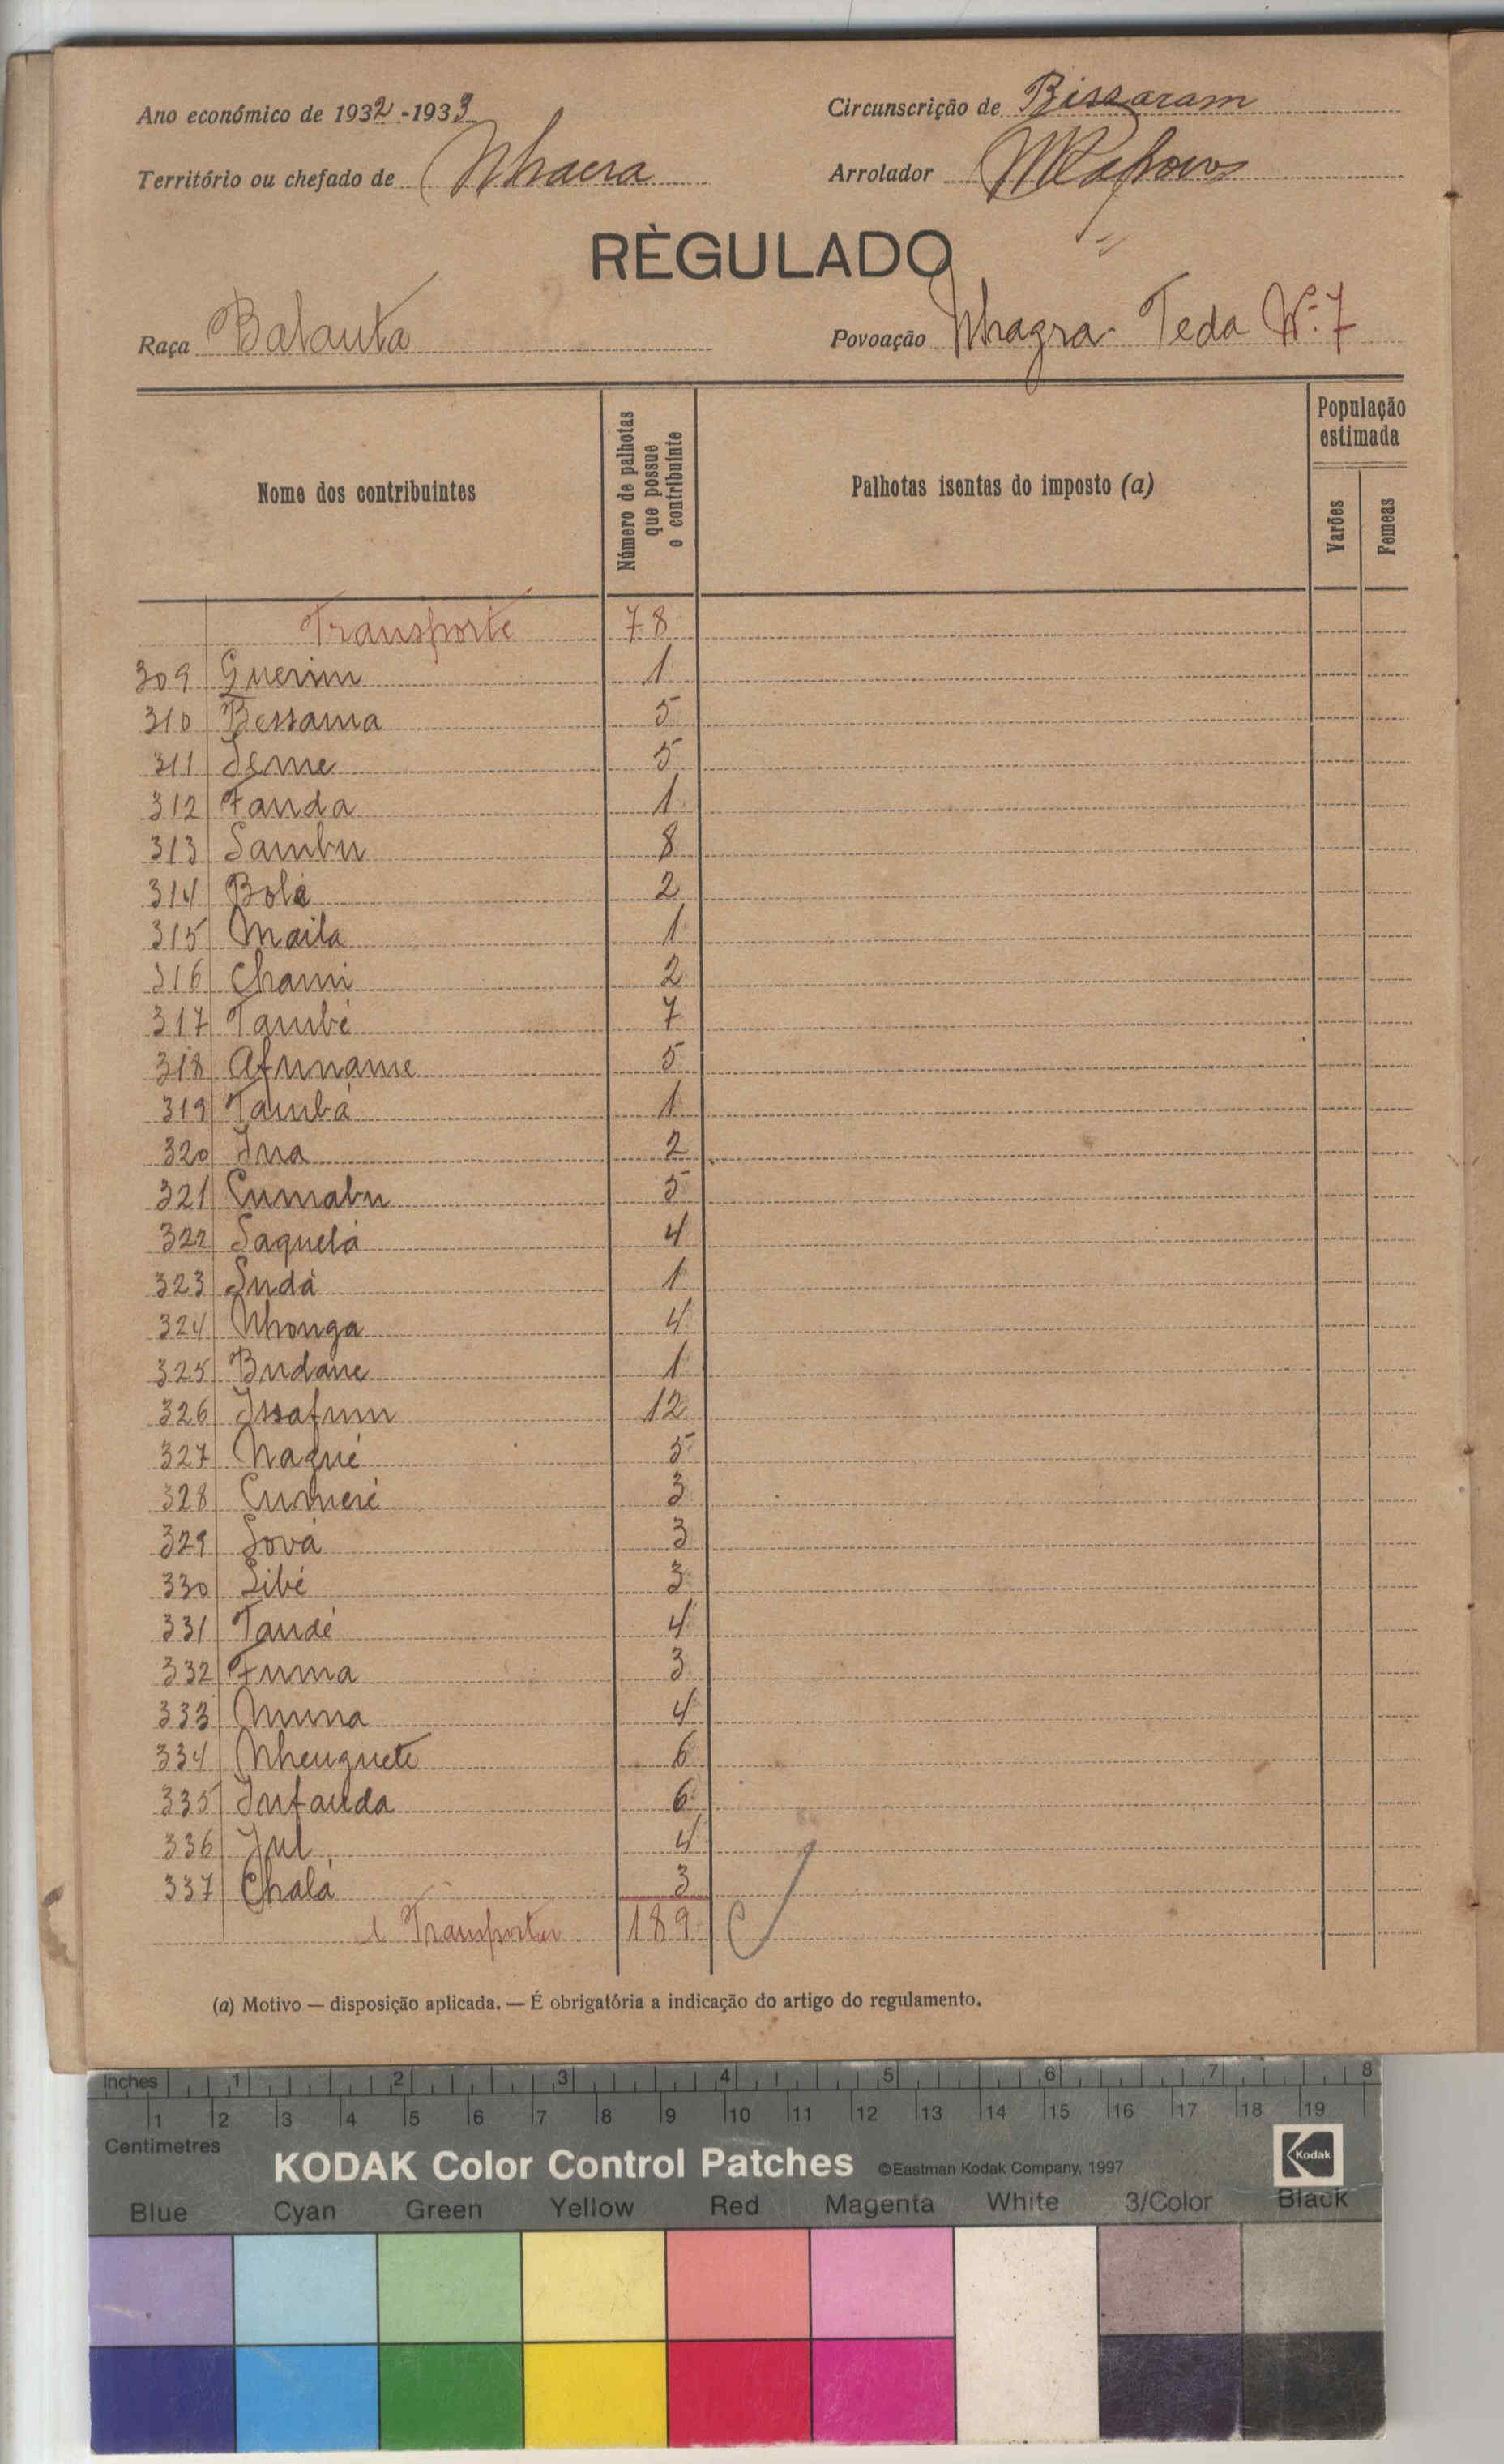 Ano económico de 1932-1933
Circunscrição de Bissaram
Território ou chefado de Nhacra
Arrolador
RÈGULADO
Raça Balanta
Povoação Nhagra Teda Nº 7
Nome dos contribuintes
Número de palhotas que possue o contribuinte
Palhotas isentas do imposto (a)
População estimada
Varões
Femeas
Transporte 78
309 Guerim 1
310 Bessama 5
311 Seme 5
312 Fanda 1
313 Sambu 8
314 Bolé 2
315 Maila 1
316 Chami 2
317 També 7
318 Afuname 5
319 Tambá 1
320 Ina 2
321 Cumabu 5
322 Saquelá 4
323 Sudá 1
324 Nhonga 4
325 Budane 1
326 Issafum 12
327 Naqué 5
328 Cumeré 3
329 Sová 3
330 Sibé 3
331 Tandé 4
332 Fuma 3
333 Muna 4
334 Nhenguete 6
335 Infanda 6
336 Jul 4
337 Chalá 3
A Transportar 189
(a) Motivo — disposição aplicada. — É obrigatória a indicação do artigo do regulamento.
Inches 1 2 3 4 5 6 7 8
1 2 3 4 5 6 7 8 9 10 11 12 13 14 15 16 17 18 19
Centimetres
KODAK Color Control Patches ©Eastman Kodak Company, 1997 Kodak
Blue Cyan Green Yellow Red Magenta White 3/Color Black